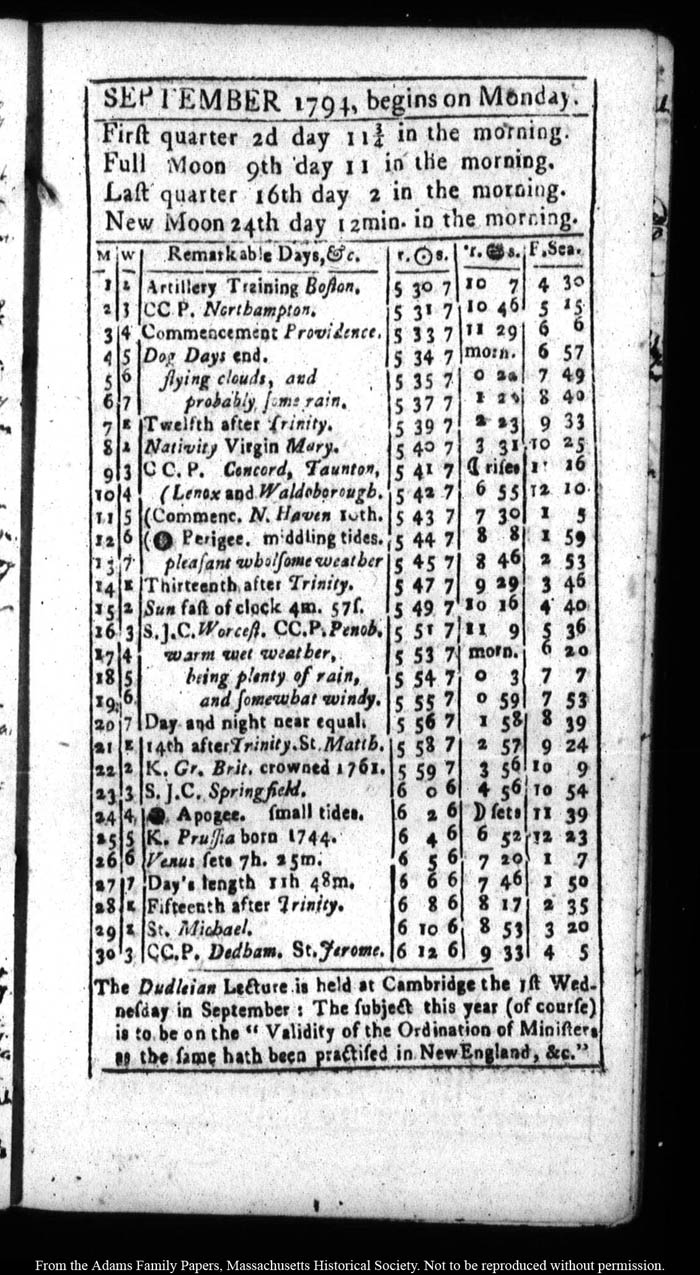 SEPTEMBER 1794, begins on Monday.
Firſt quarter 2d day 11¾ in the morning.
Full Moon 9th day 11 in the morning.
Laſt quarter 16th day 2 in the morning.
New Moon 24th day 12min. in the morning.
M W Remarkable Days, &c. r. ☉ s. r. s. F. Sea.
1 2 Artillery Training Boſton. 5 30 7 10 7 4 30
2 3 CC P. Northampton. 5 31 7 10 46 5 15
3 4 Commencement Providence. 5 33 7 11 29 6 6
4 5 Dog Days end. 5 34 7 morn. 6 57
5 6 flying clouds, and 5 35 7 0 7 49
6 7 probably ſome rain. 5 37 7 1 8 40
7 E Twelfth after Trinity. 5 39 7 2 23 9 33
8 2 Nativity Virgin Mary. 5 40 7 3 31 10 25
9 3 C C. P. Concord, Taunton, 5 41 7 ☾ riſes 16
10 4 (Lenox and Waldoborough. 5 42 7 6 55 12 10
11 5 (Commenc. N. Haven 10th. 5 43 7 7 30 1 5
12 6 ( Perigee. middling tides. 5 44 7 8 8 1 59
13 7 pleaſant wholſome weather 5 45 7 8 46 2 53
14 E Thirteenth after Trinity. 5 47 7 9 29 3 46
15 2 Sun faſt of clock 4m. 57ſ. 5 49 7 10 16 4 40
16 3 S.J.C. Worceſt. CC.P. Penob. 5 51 7 11 9 5 36
17 4 warm wet weather, 5 53 7 morn. 6 20
18 5 being plenty of rain, 5 54 7 0 3 7 7
19 6 and ſomewhat windy. 5 55 7 0 59 7 53
20 7 Day and night near equal. 5 56 7 1 58 8 39
21 E 14th after Trinity. St. Matth. 5 58 7 2 57 9 24
22 2 K. Gr. Brit. crowned 1761. 5 59 7 3 56 10 9
23 3 S.J.C. Springfield. 6 0 6 4 56 10 54
24 4 Apogee. ſmall tides. 6 2 6 ☽ ſets 11 39
25 5 K. Pruſſia born 1744. 6 4 6 6 52 12 23
26 6 Venus ſets 7h. 25m. 6 5 6 7 20 1 7
27 7 Day's length 11h 48m. 6 6 6 7 46 1 50
28 E Fifteenth after Trinity. 6 8 6 8 17 2 35
29 2 St. Michael. 6 10 6 8 53 3 20
30 3 CC.P. Dedham. St. Jerome. 6 12 6 9 33 4 5
The Dudleian Lecture is held at Cambridge the 1ſt Wed-
neſday in September: The ſubject this year (of courſe)
is to be on the "Validity of the Ordination of Miniſters
as the ſame hath been practiſed in New England, &c."
From the Adams Family Papers, Massachusetts Historical Society. Not to be reproduced without permission.